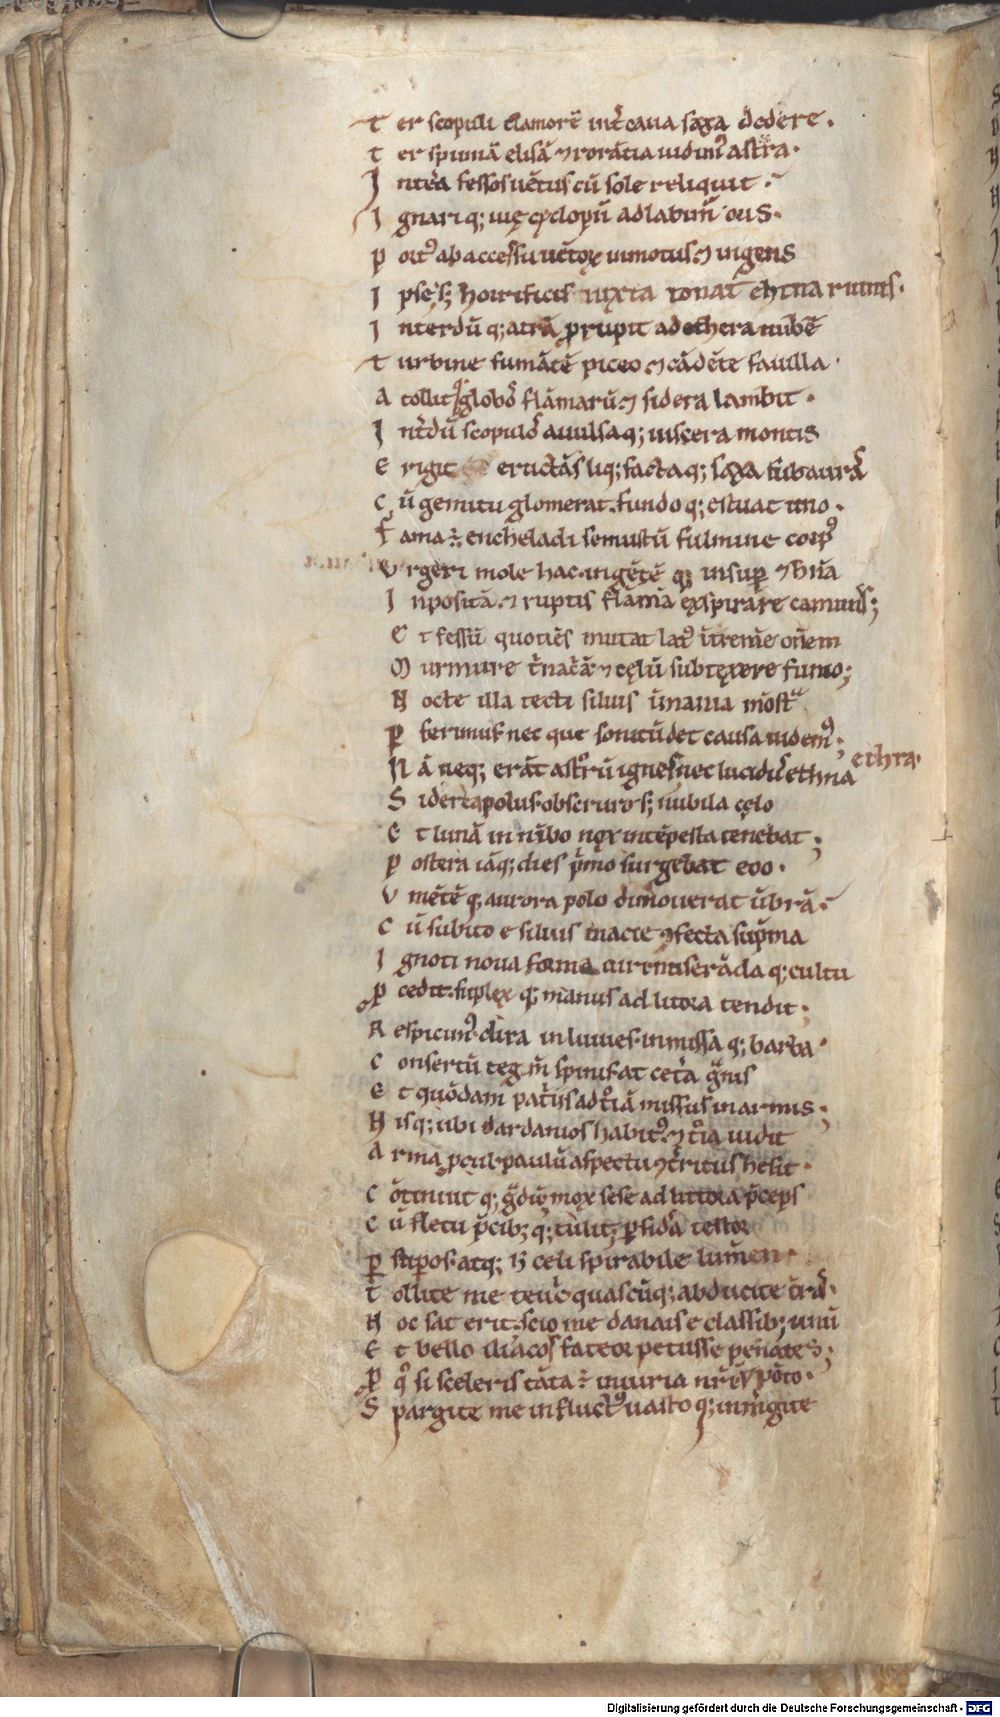 T er scopuli clamorē int̄ caua saxa dedere.
t er spumā elisā ⁊ rorātia uidim᷒ astra.
I nterea fessos uētus cū sole reliquit.
I gnari q; uię cyclopū adlabimur oris.
p ort᷒ ab accessu uētorꝝ inmotus ⁊ ingens
I pse, s; horrificis iuxta tonat ethna ruinis.
I nterdū q; atrā ꝓrupit ad ethera nubē
T urbine fumātē piceo ⁊ cādēte fauilla.
a tollit q; globos flāmarū ⁊ sidera lambit.
I nt̄dū scopulos auulsa q; uiscera montis
e rigit eructās liq;facta q; saxa sub aurās
C ū gemitu glomerat. fundo q; estuat imo.
F ama ē encheladi semustū fulmine corp᷒
V rgeri mole hac. ingētē q; insuꝑ ethnā
I npositā. ⁊ ruptis flāmā exspirare caminis;
E t fessū quotiēs mutat lat᷒ īt̄remē̄ om̄em
M urmure t̄nac̄ā ⁊ cęlū subtexere fumo;
N octe illa tecti siluis īmania mōstᵃ
ꝑ ferimus nec que sonitū det causa uidem᷒;
N ā neq; erāt astrorū ignes nec lucid᷒ ethna
ethra.
S idereapolus. obscuro s; nubila cęlo
E t lunā in nībo nox intēpesta tenebat;
p ostera iāq; dies p̄mo surgebat eoo.
V mētē q; aurora polo dimouerat ūbrā.
C ū subito e siluis macie ꝯfecta sup̄ma
I gnoti noua forma uiri miserāda q; cultu
ꝓ cedit. suplex q; manus ad litora tendit;
R espicim᷒. dira inluuies. inmissa q; barba.
C onsertū teḡm̄ spinis. at cet̄a g̈nis
E t quōdam pat̄iis ad t̊iā missus in armis;
H isq; ubi dardanios habit᷒ ⁊ t̊ia uidit
a rma ꝓcul. paulū aspectu ꝯt̄ritus hesit.
C ōtinuit q; g̈dū. mox sese ad littora p̄ceps
C ū fletu p̄cib; q; tulit; ꝑ sidera testor
ꝑ suꝑos. atq; h̄ celi spirabile lumen.
t ollite me teuc̄i quascūq; abducite t̄ras.
H oc sat erit. scio me danais e classib; unū
E t bello iliacos fateor petiisse penates;
ꝓ q̊ si sceleris tāta ē iniuria nr̄i
S pargite me in fluct᷒ uasto q; inm̄gite
Digitalisierung gefördert durch die Deutsche Forschungsgemeinschaft - DFG